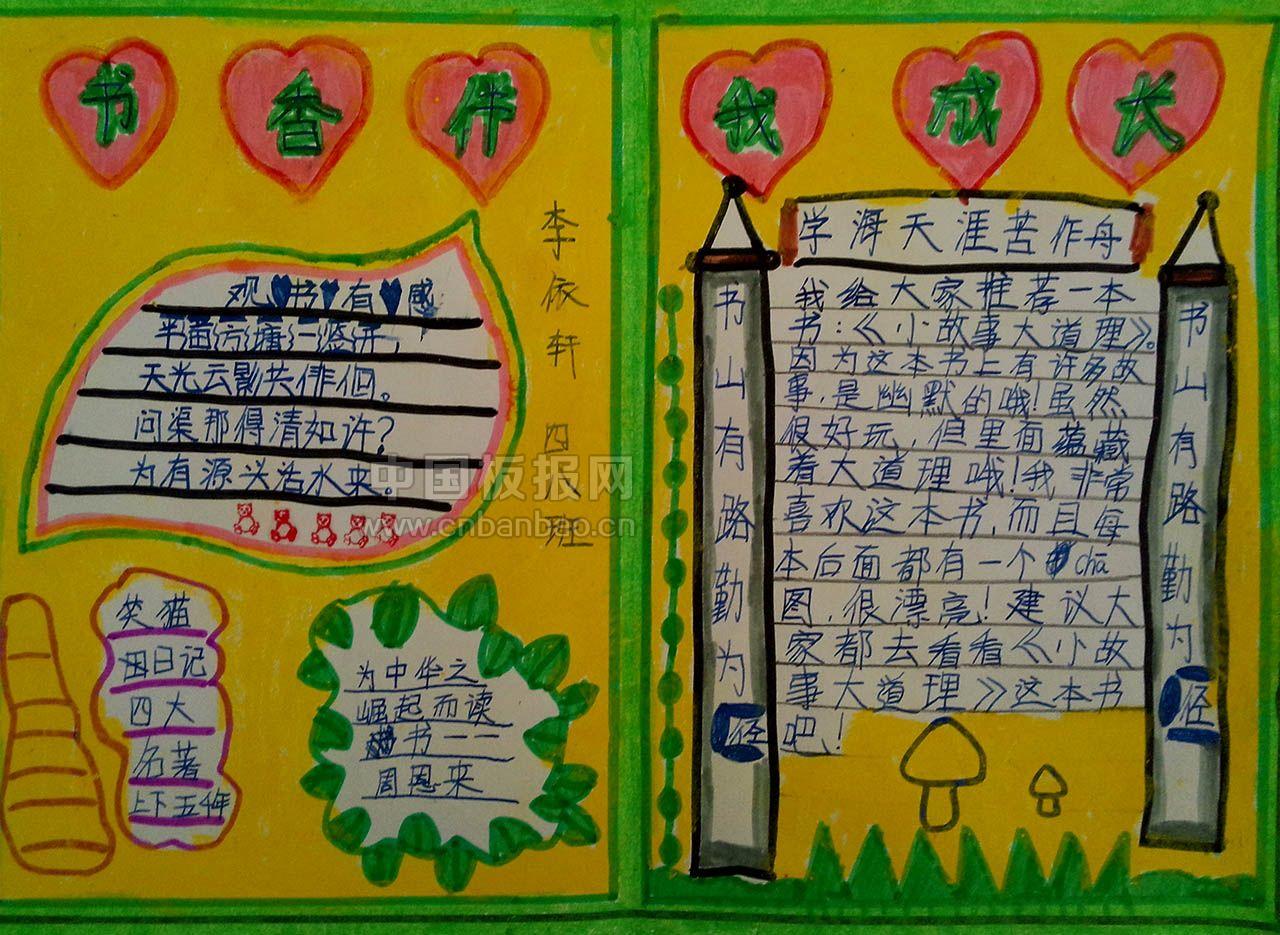 书香伴
我成长
李依轩 四八班
观书有感
半亩方塘一鉴开,
天光云影共徘徊。
问渠那得清如许?
为有源头活水来。
中国板报网
www.cnbanbao.cn
笑猫
日记
四大
名著
上下五千年
为中华之
崛起而读
书一一
周恩来
学海天涯苦作舟
书山有路勤为径
我给大家推荐一本
书:《小故事大道理》。
因为这本书上有许多故
事,是幽默的哦!虽然
很好玩,但里面蕴藏
着大道理哦!我非常
喜欢这本书,而且每
本后面都有一个cha
图,很漂亮!建议大
家都去看看《小故
事大道理》这本书
吧!
书山有路勤为径